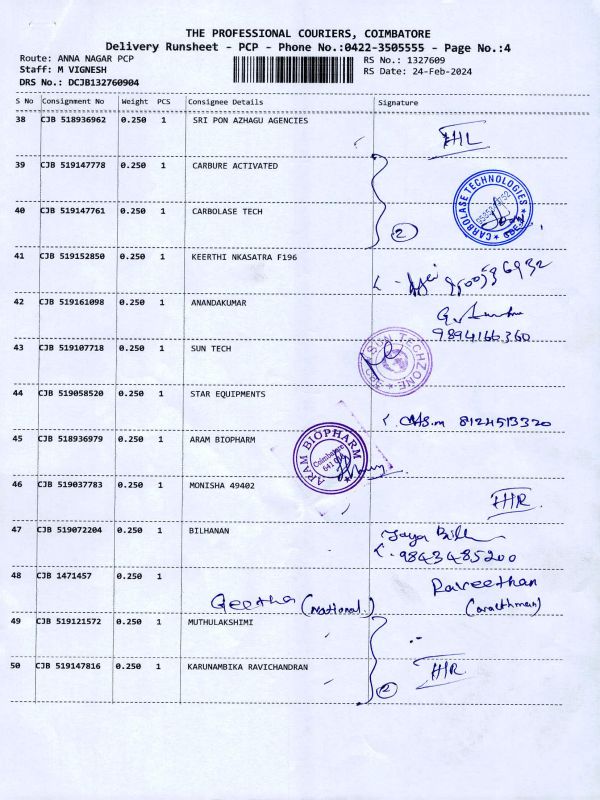 THE PROFESSIONAL COURIERS, COIMBATORE
Delivery Runsheet - PCP - Phone No.:0422-3505555 - Page No.:4
Route: ANNA NAGAR PCP
Staff: M VIGNESH
DRS No.: DCJB132760904
RS No.: 1327609
RS Date: 24-Feb-2024
S No Consignment No Weight PCS Consignee Details Signature
38 CJB 518936962 0.250 1 SRI PON AZHAGU AGENCIES
39 CJB 519147778 0.250 1 CARBURE ACTIVATED
CARBOLASE TECHNOLOGIES
40 CJB 519147761 0.250 1 CARBOLASE TECH
2
41 CJB 519152850 0.250 1 KEERTHI NKASATRA F196
42 CJB 519161098 0.250 1 ANANDAKUMAR
9894166360
43 CJB 519107718 0.250 1 SUN TECH
SUN TECHZONE
44 CJB 519058520 0.250 1 STAR EQUIPMENTS
8124513320
45 CJB 518936979 0.250 1 ARAM BIOPHARM
ARAM BIOPHARM
Coimbatore
46 CJB 519037783 0.250 1 MONISHA 49402
47 CJB 519072204 0.250 1 BILHANAN
Jaya
9843485200
48 CJB 1471457 0.250 1
Geetha (National.)
Raveethan
49 CJB 519121572 0.250 1 MUTHULAKSHIMI
50 CJB 519147816 0.250 1 KARUNAMBIKA RAVICHANDRAN
2